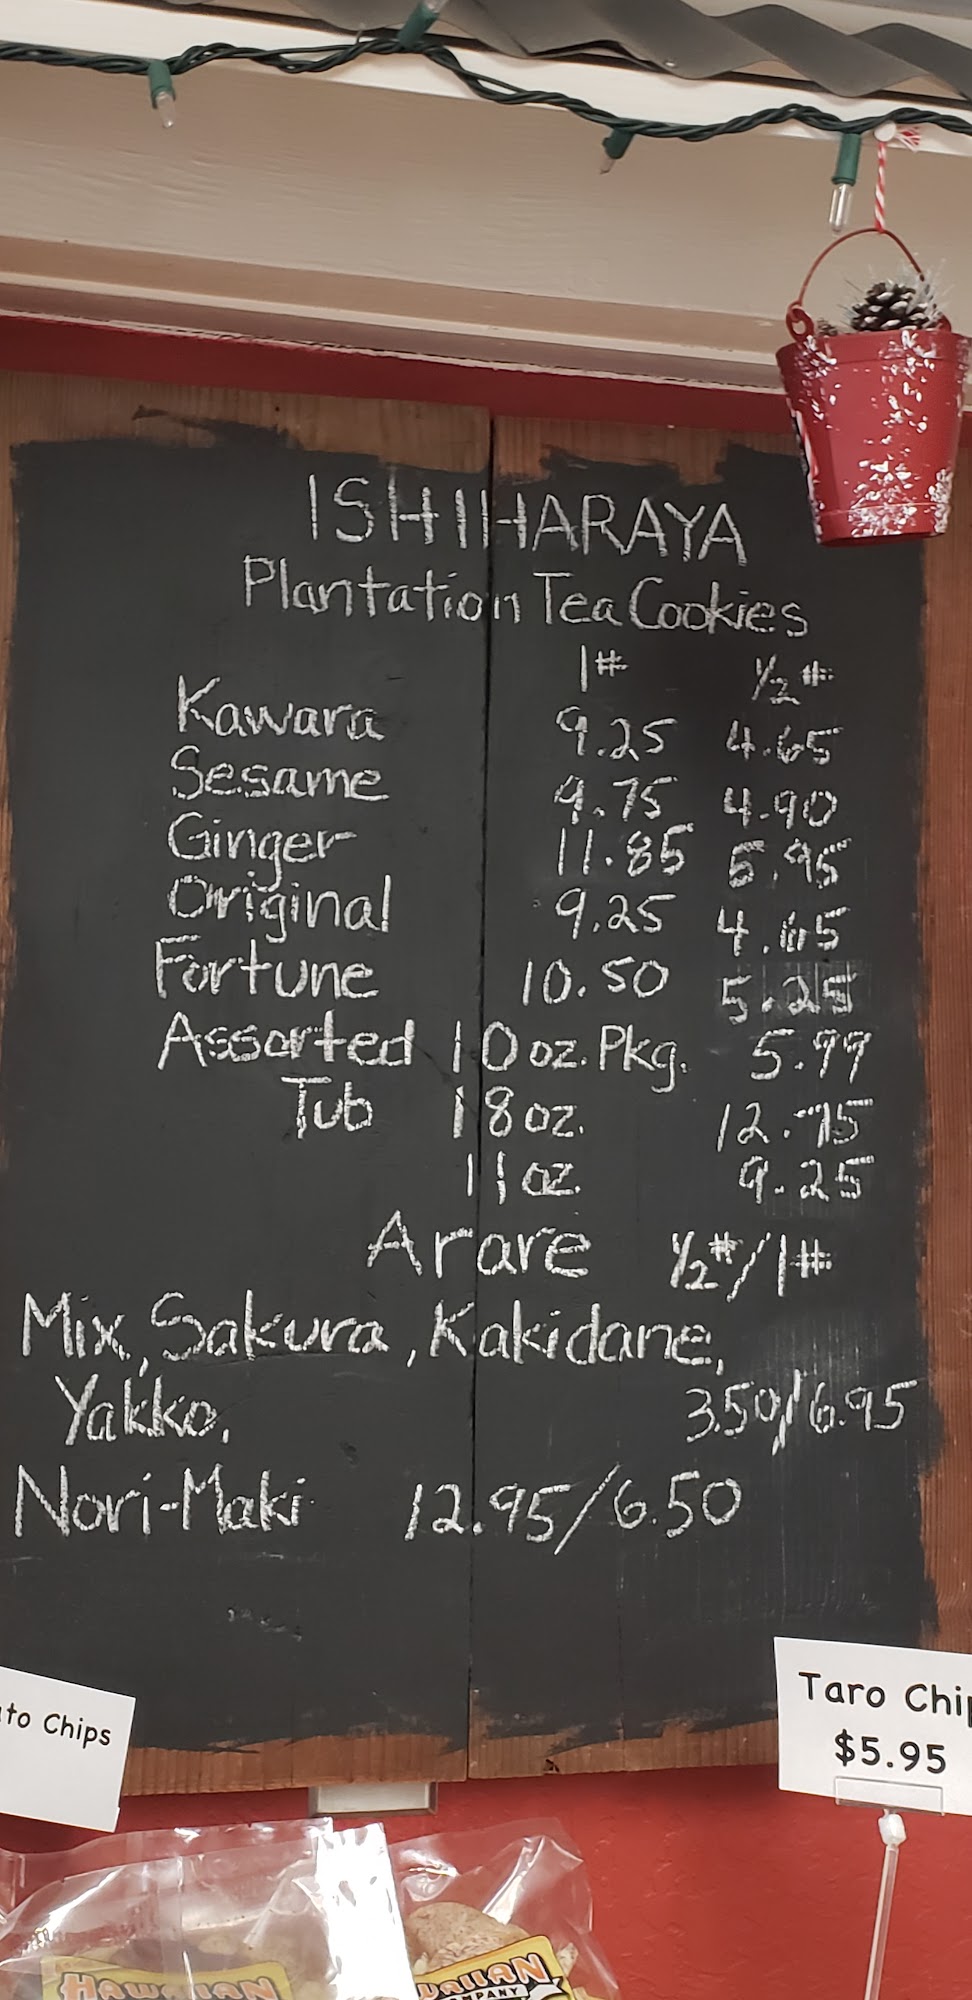 ISHIHARAYA
Plantation Tea Cookies
1# ½#
Kawara 9.25 4.65
Sesame 9.75 4.90
Ginger 11.85 5.95
Original 9.25 4.65
Fortune 10.50 5.25
Assorted 10 oz. Pkg. 5.99
Tub 18 oz. 12.75
11 oz. 9.25
Arare ½#/1#
Mix, Sakura, Kakidane,
Yakko, 3.50/6.95
Nori-Maki 12.95/6.50
Chips
Taro Chip
$5.95
HAWAIIAN